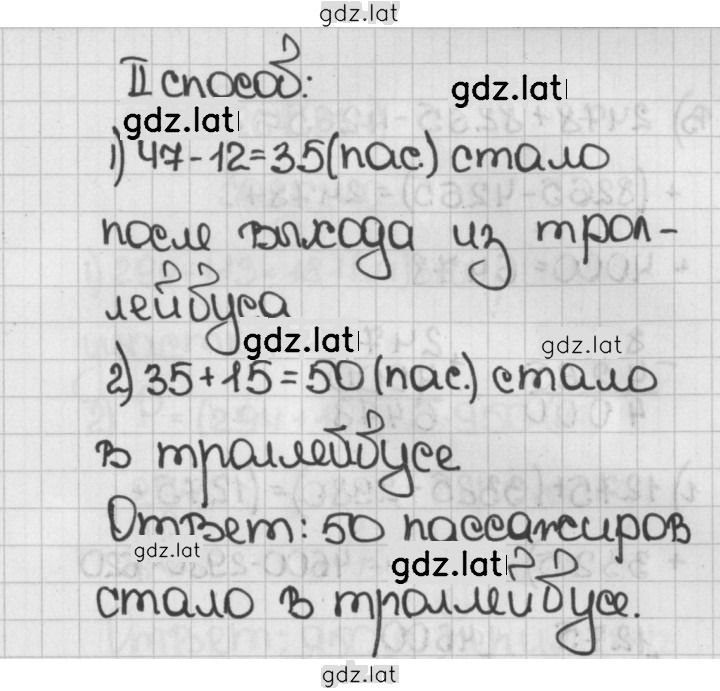 gdz.lat
II способ:
gdz.lat
gdz.lat
1) 47-12=35(пас.) стало
после выхода из трол-
лейбуса
gdz.lat
gdz.lat
2) 35+15=50(пас.) стало
в троллейбусе
Ответ: 50 пассажиров
gdz.lat
gdz.lat
стало в троллейбусе.
gdz.lat